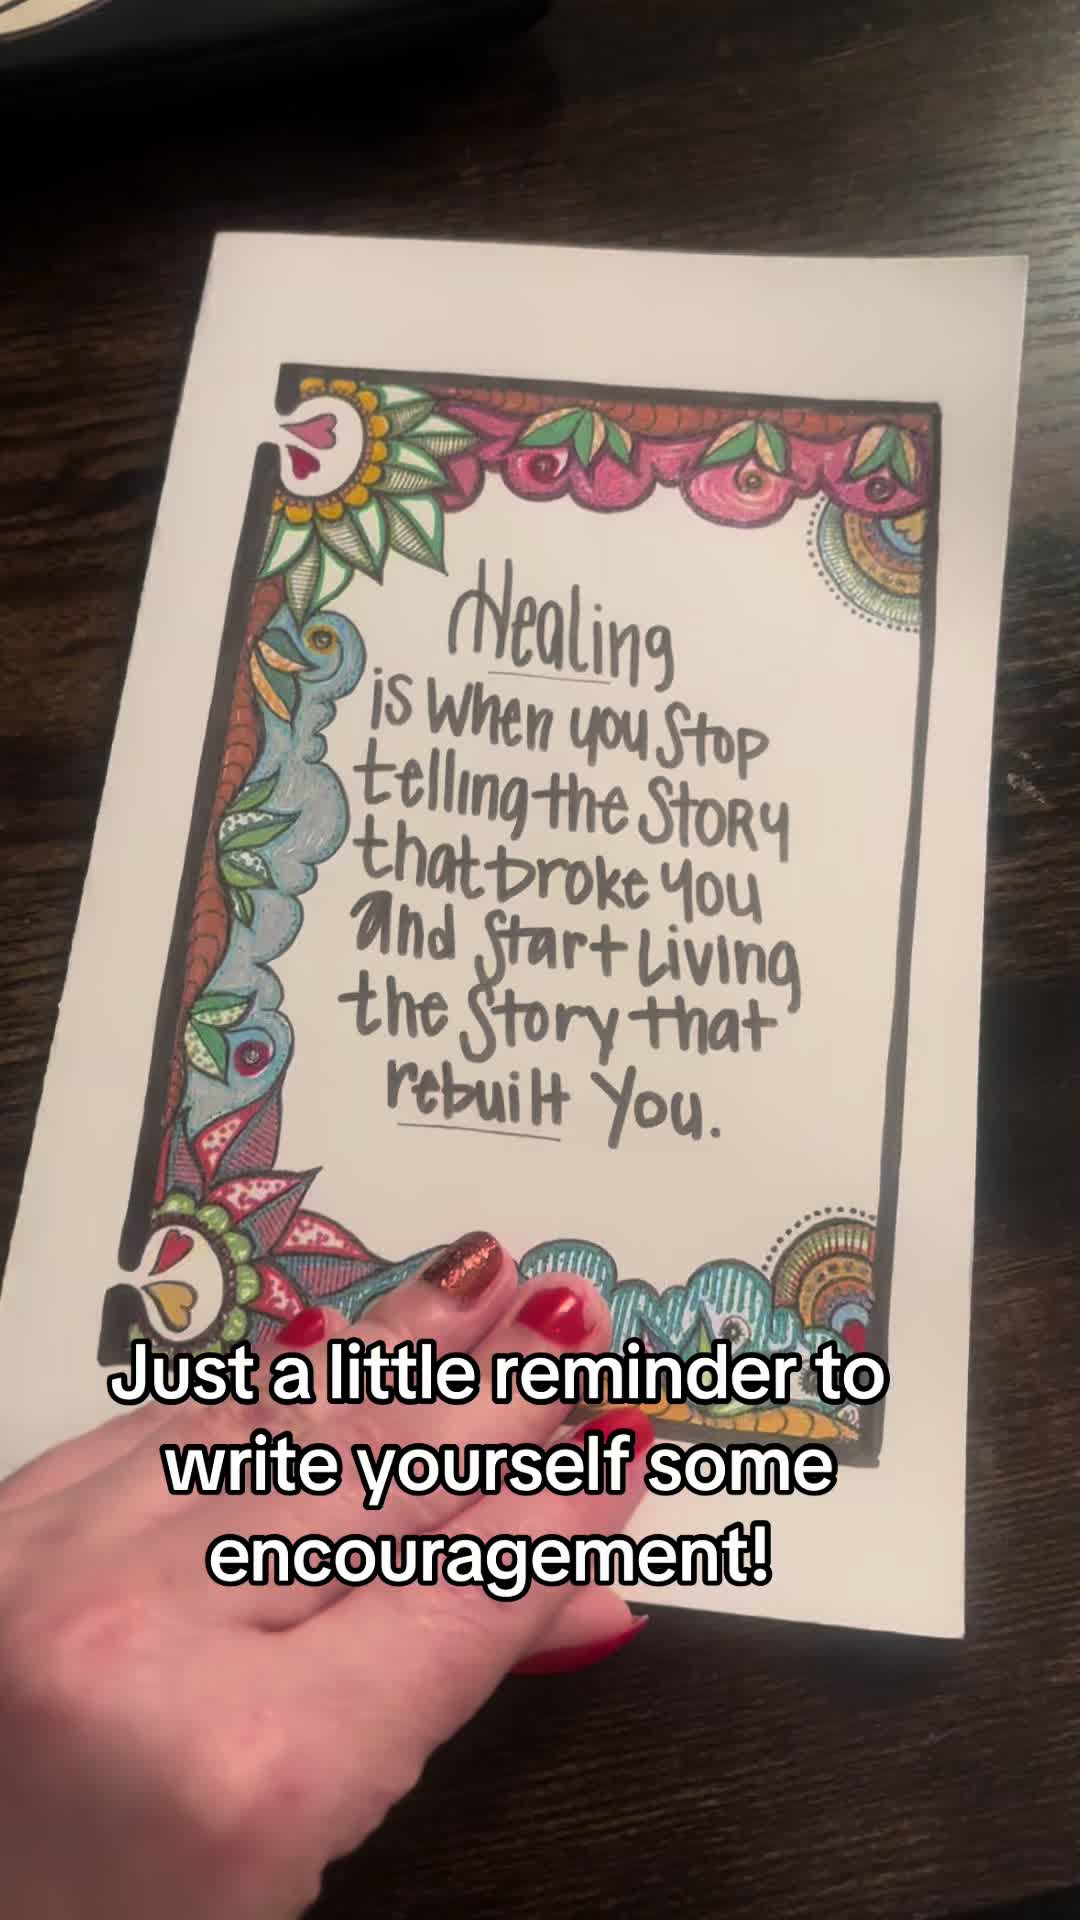 Healing
is when you Stop
telling the Story
that broke you
and Start Living
the Story that
rebuilt You.
Just a little reminder to
write yourself some
encouragement!